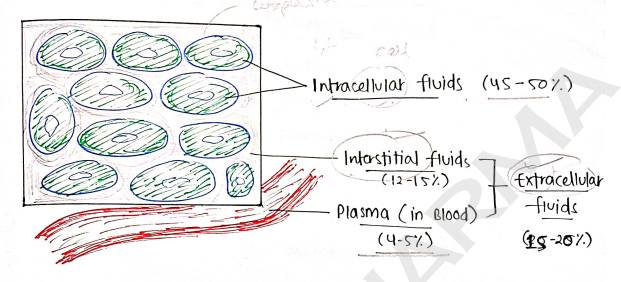 cell
Intracellular fluids (45-50%)
Interstitial fluids
(12-15%)
Extracellular
fluids
(15-20%)
Plasma (in Blood)
(4-5%)
PHARMA